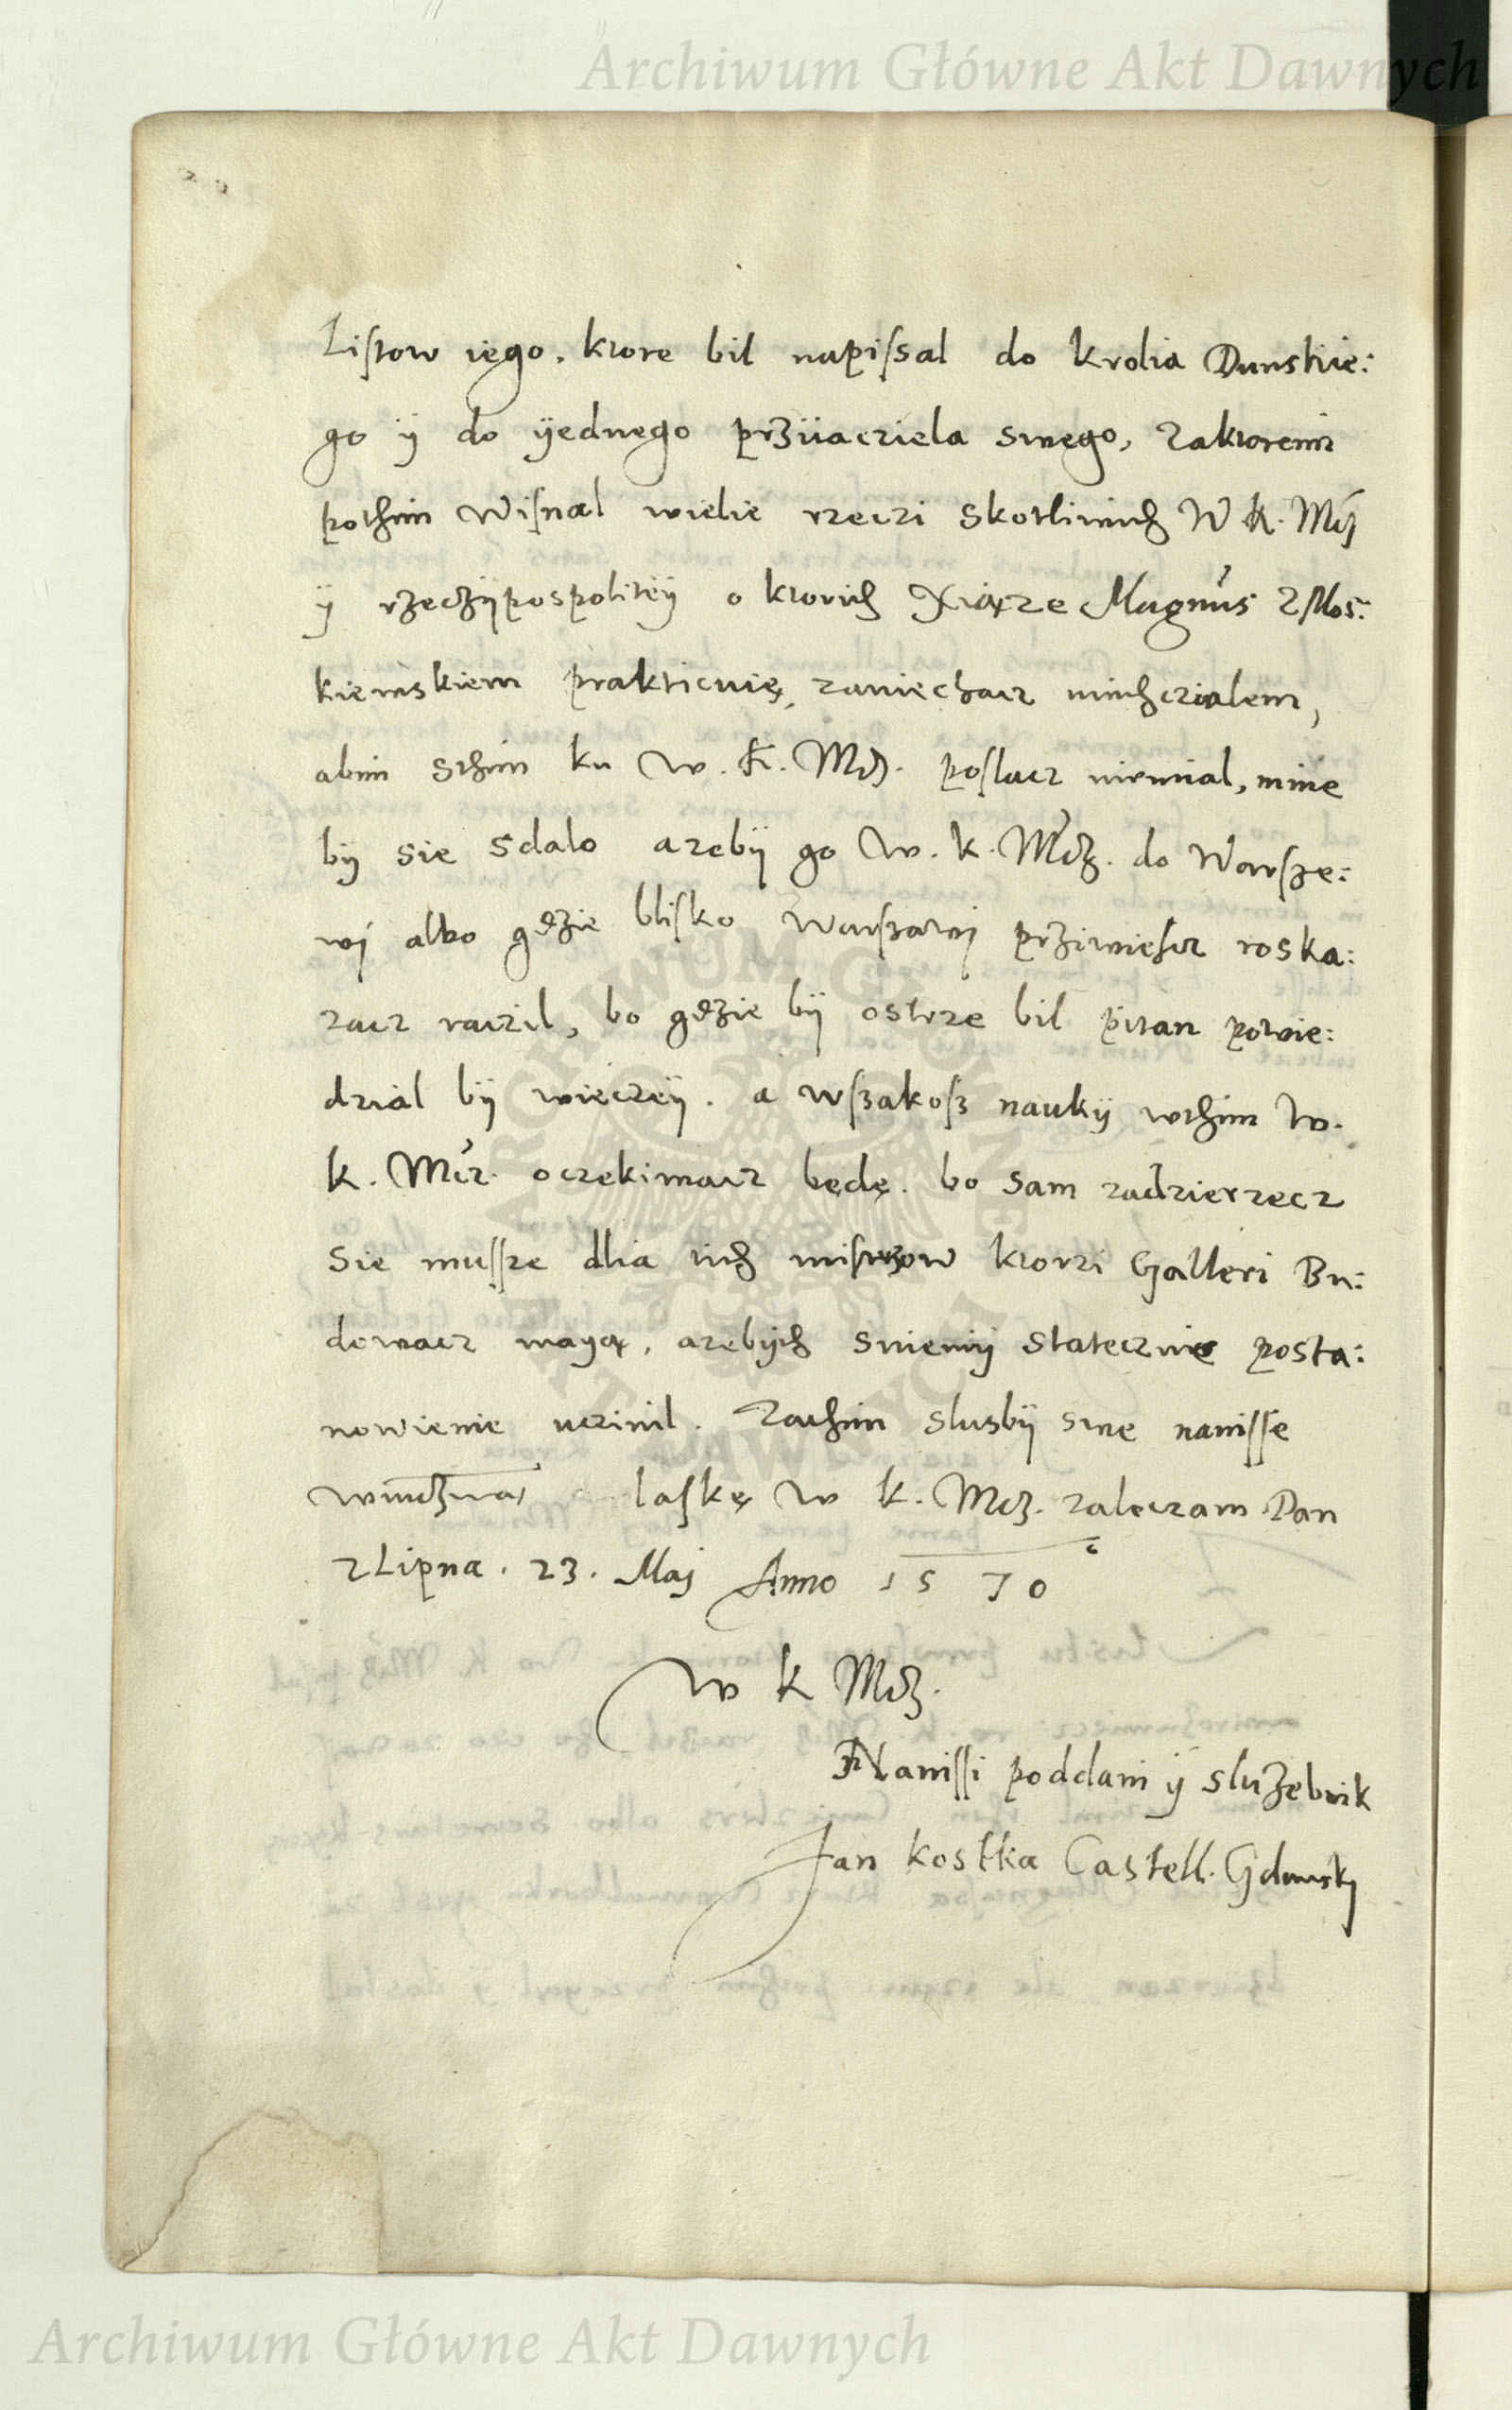 Archiwum Główne Akt Dawnych
Listow iego, ktore bil napissal do Krolia Dunskie:
go ÿ do ÿednego przÿiacziela swego, zaktoremi
pothim Wisnal wielie rzeczi skotliwich W K. Mczi
ÿ rzeczÿpospolitëÿ o ktorich Xiąze Magnus z Mos:
kiewskiem prakticuię, zaniechacz niechczialem,
abim sthim ku W. K. Mczi. poslacz niemial, mnie
bÿ sie sdalo azebÿ go W. K. Mcz. do Warsze:
wj albo gdzie blisko Warszawj prziwiescz roska:
zacz raczil, bo gdzie bÿ ostrze bil pitan powie:
dzial bÿ wieczëÿ. a wszakosz naukÿ wthim W.
K. Mcz. oczekiwacz będę. bo sam zadzierzecz
Sie mussze dlia tich mistrzow ktorzi Galleri Bu:
dowacz mayą, azebÿch sniemÿ statecznie posta:
nowienie uczinil. Zathim slusbÿ swe nanisse
laskę W K. Mcz. zaleczam Dan
z Lipna. 23. Maj Anno 1570
W K Mcz.
Nanissi poddani ÿ sluzebnik
Jan Kostka Castell. Gdanskj
ARCHIWUM GŁÓWNE AKT DAWNYCH
Archiwum Główne Akt Dawnych